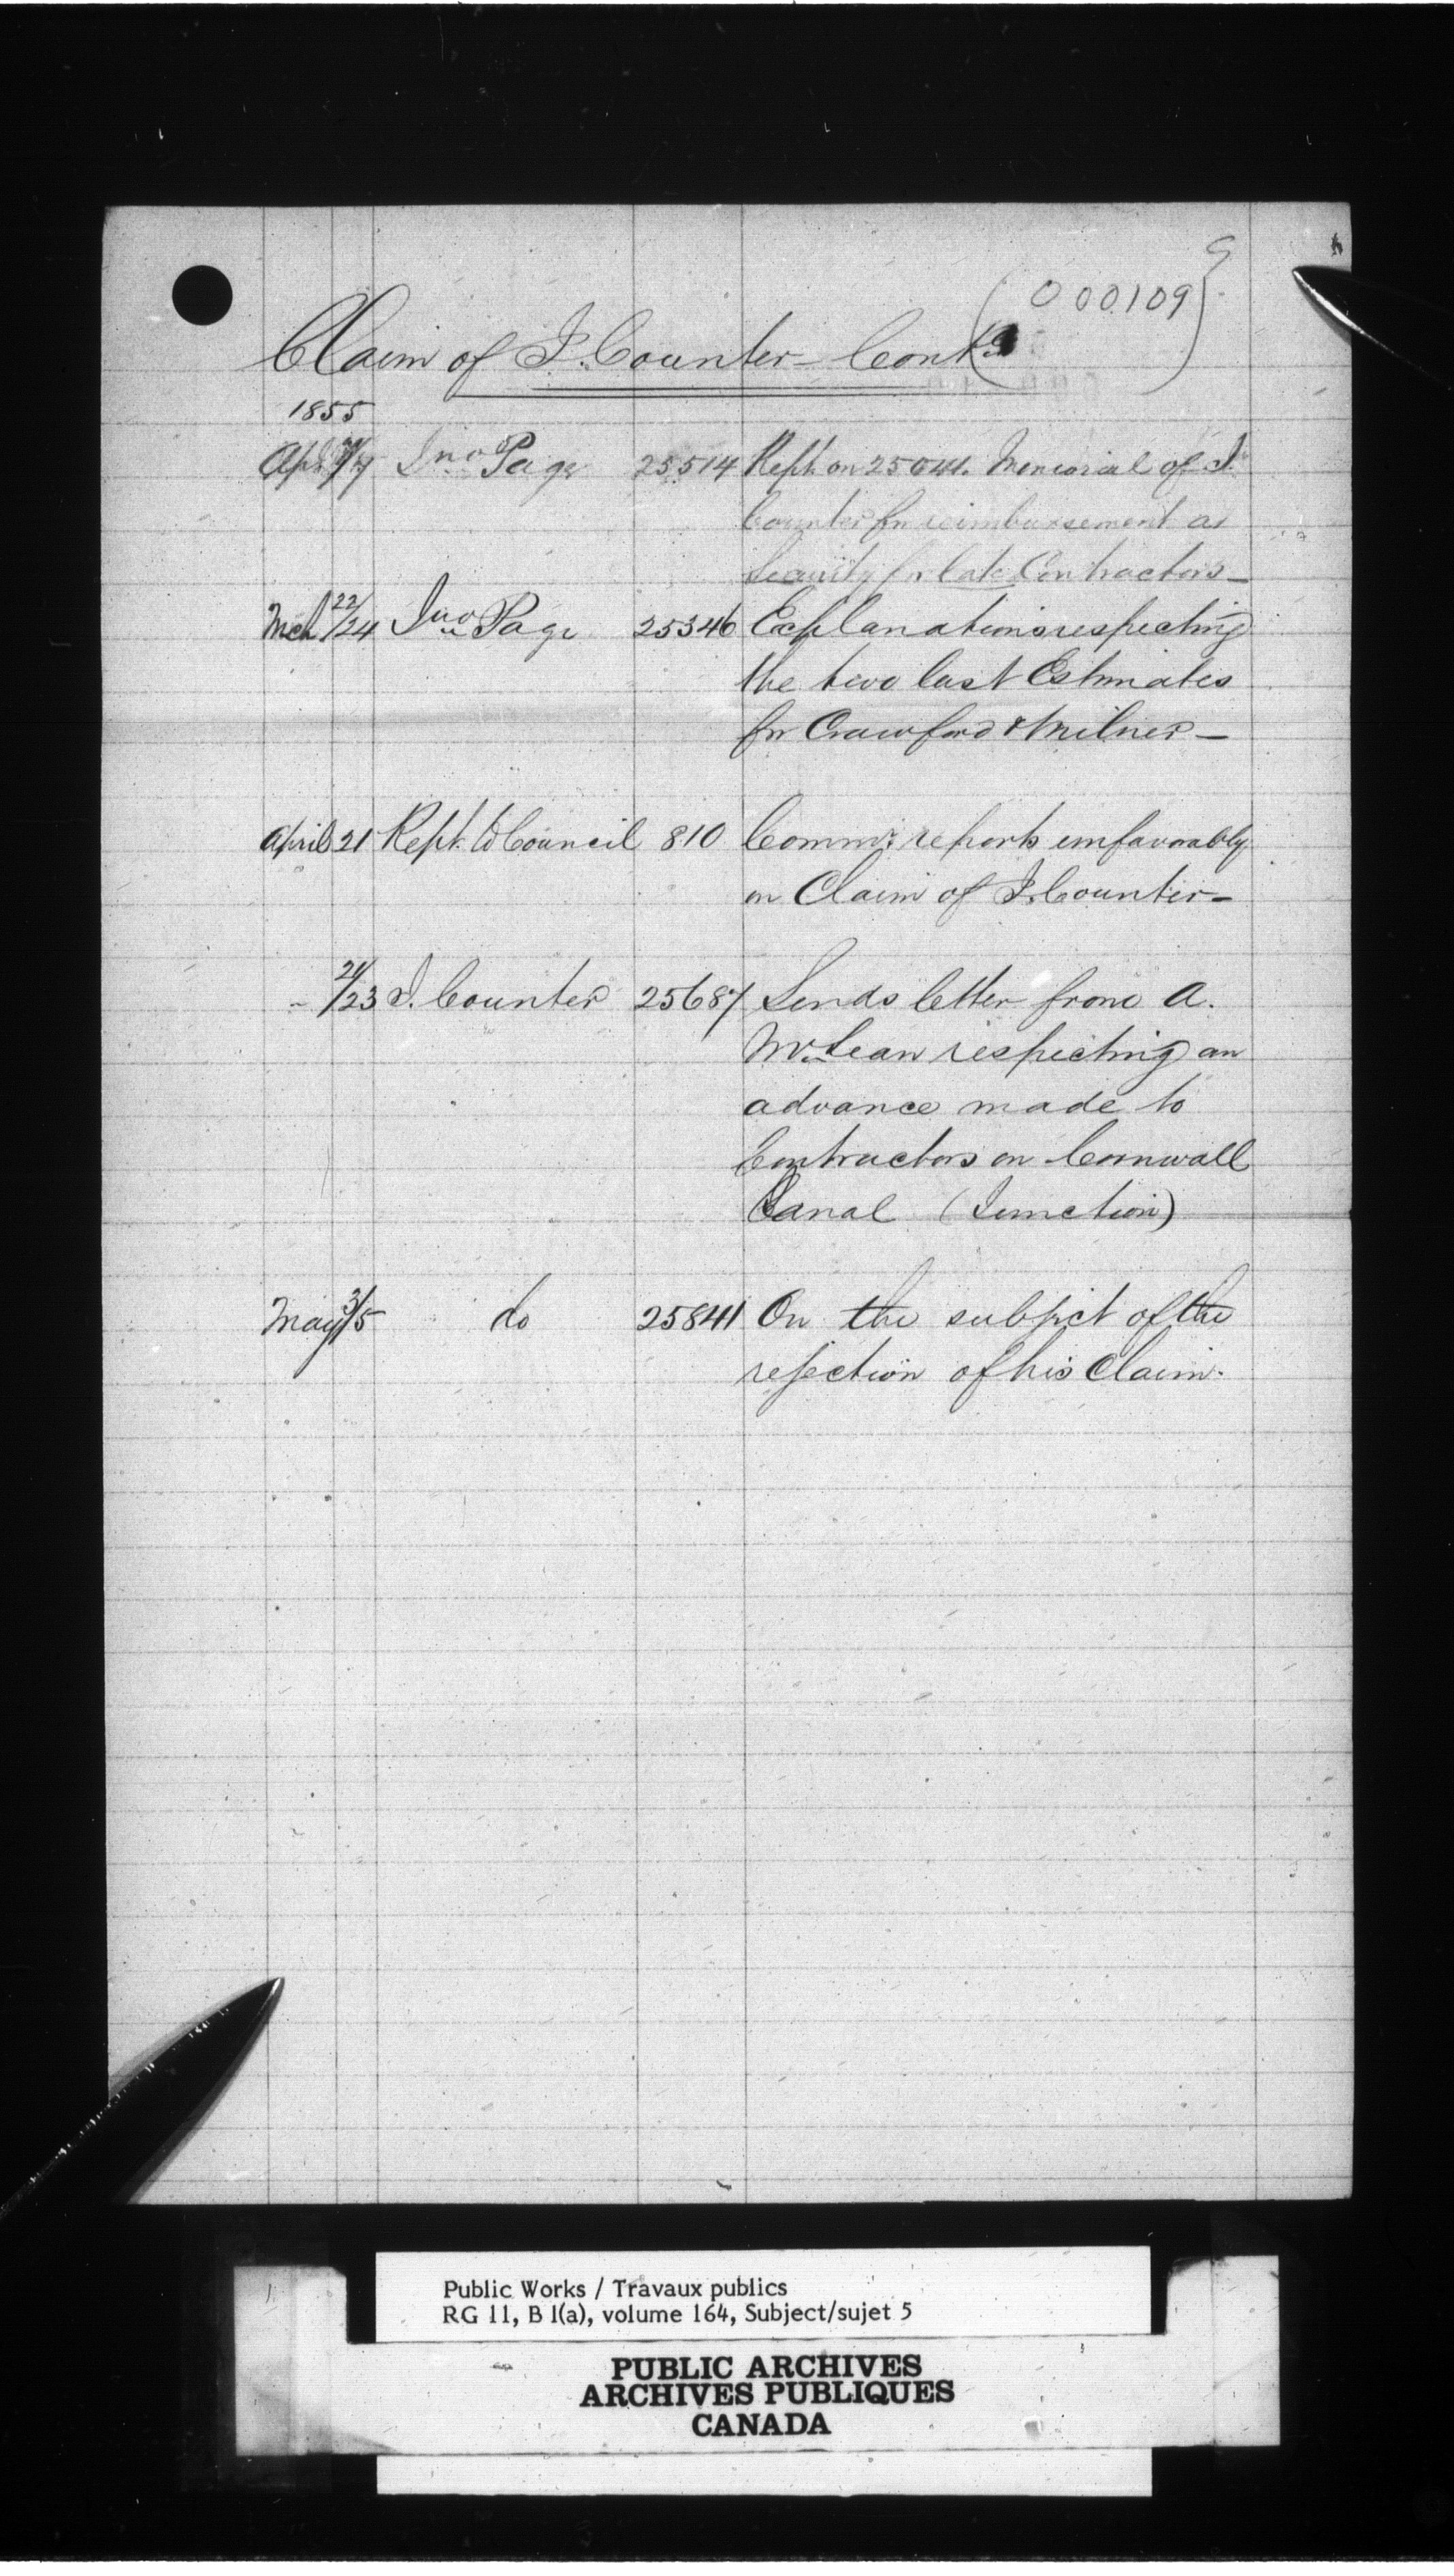 9
(000109)
Claim of J. Counter - Contd
1855
Apl. /7 Jno Page 25514 Rept. on 25041. Memorial of J.
Counter for reimbursement as
Security for late Contractors -
Mch 22/24 Jno Page 25346 Explanations respecting
the two last Estimates
for Crawford & Milner -
April 21 Rept. to Council 810 Commrs reports unfavorably
on Claim of J. Counter -
- 21/23 J. Counter 25687 Sends letter from A.
McLean respecting an
advance made to
Contractors on Cornwall
Canal (Junction)
May 3/5 do 25841 On the subject of the
rejection of his Claim.
Public Works / Travaux publics
RG 11, B 1(a), volume 164, Subject/sujet 5
PUBLIC ARCHIVES
ARCHIVES PUBLIQUES
CANADA